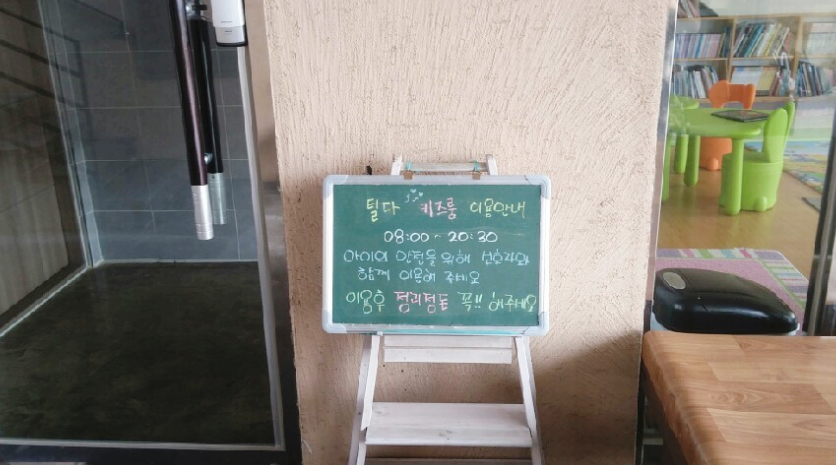 틸다 키즈룸 이용안내
08:00~20:30
아이의 안전을 위해 보호자와
함께 이용해 주세요
이용후 정리정돈 꼭!! 해주세요